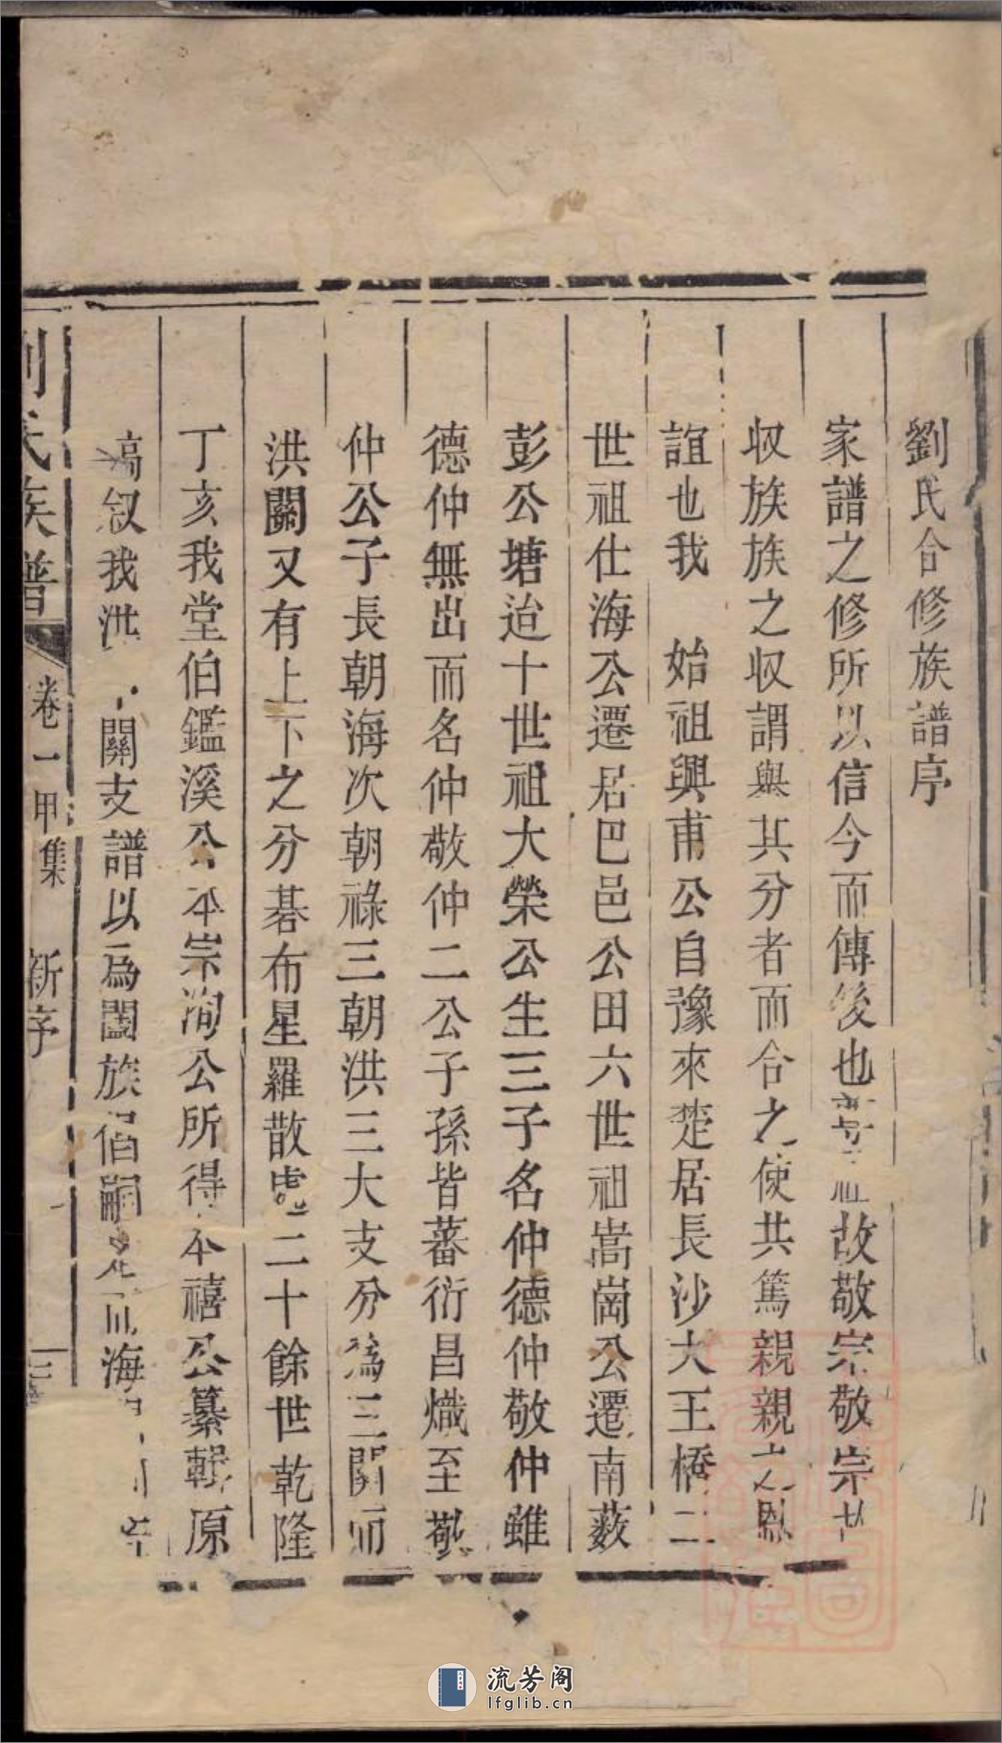 劉氏合修族譜序
家譜之修所以信今而傳後也尊祖故敬宗敬宗故
収族族之収謂與其分者而合之使共篤親親之恩
誼也我　始祖興甫公自豫來楚居長沙大王橋二
世祖仕海公遷居巴邑公田六世祖嵩崗公遷南薮
彭公塘迨十世祖大榮公生三子名仲德仲敬仲雖
德仲無出而名仲敬仲二公子孫皆蕃衍昌熾至敬
仲公子長朝海次朝祿三朝洪三大支分為三關而
洪關又有上下之分碁布星羅散處二十餘世乾隆
丁亥我堂伯鑑溪公本崇洵公所得本禧公纂輯原
稿叙我洪　關支譜以為闔族倡嗣是而海
劉氏族譜　卷一　甲集　新序　三
流芳阁
lfglib.cn